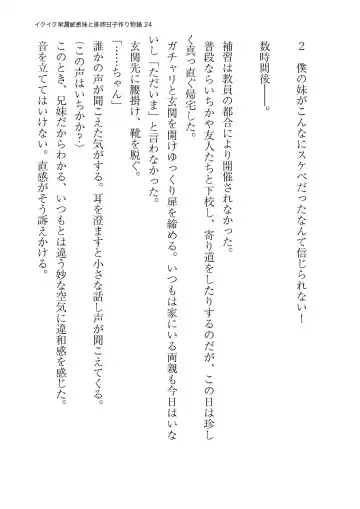 数時間後――。
補習は教員の都合により開催されなかった。
普段ならいちかや友人たちと下校し、寄り道をしたりするのだが、この日は珍し
く真っ直ぐ帰宅した。
ガチャリと玄関を開けゆっくり扉を締める。いつもは家にいる両親も今日はいな
いし「ただいま」と言わなかった。
玄関先に腰掛け、靴を脱ぐ。
「……ちゃん」
誰かの声が聞こえた気がする。耳を澄ますと小さな話し声が聞こえてくる。
(この声はいちかか？)
このとき、兄妹だからわかる、いつもとは違う妙な空気に違和感を感じた。
音を立ててはいけない。直感がそう訴えかける。